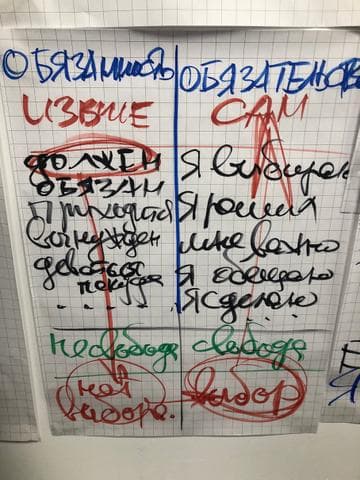 ОБЯЗАННОСТЬ
ИЗВНЕ
ДОЛЖЕН
ОБЯЗАН
Приходится
вынужден
деваться
некуда
....
несвобода
нет
выбора.
ОБЯЗАТЕЛЬСТВ
САМ
Я выбираю
Я решил
мне важно
Я обещаю
Я сделаю
...
свобода
выбор
Я